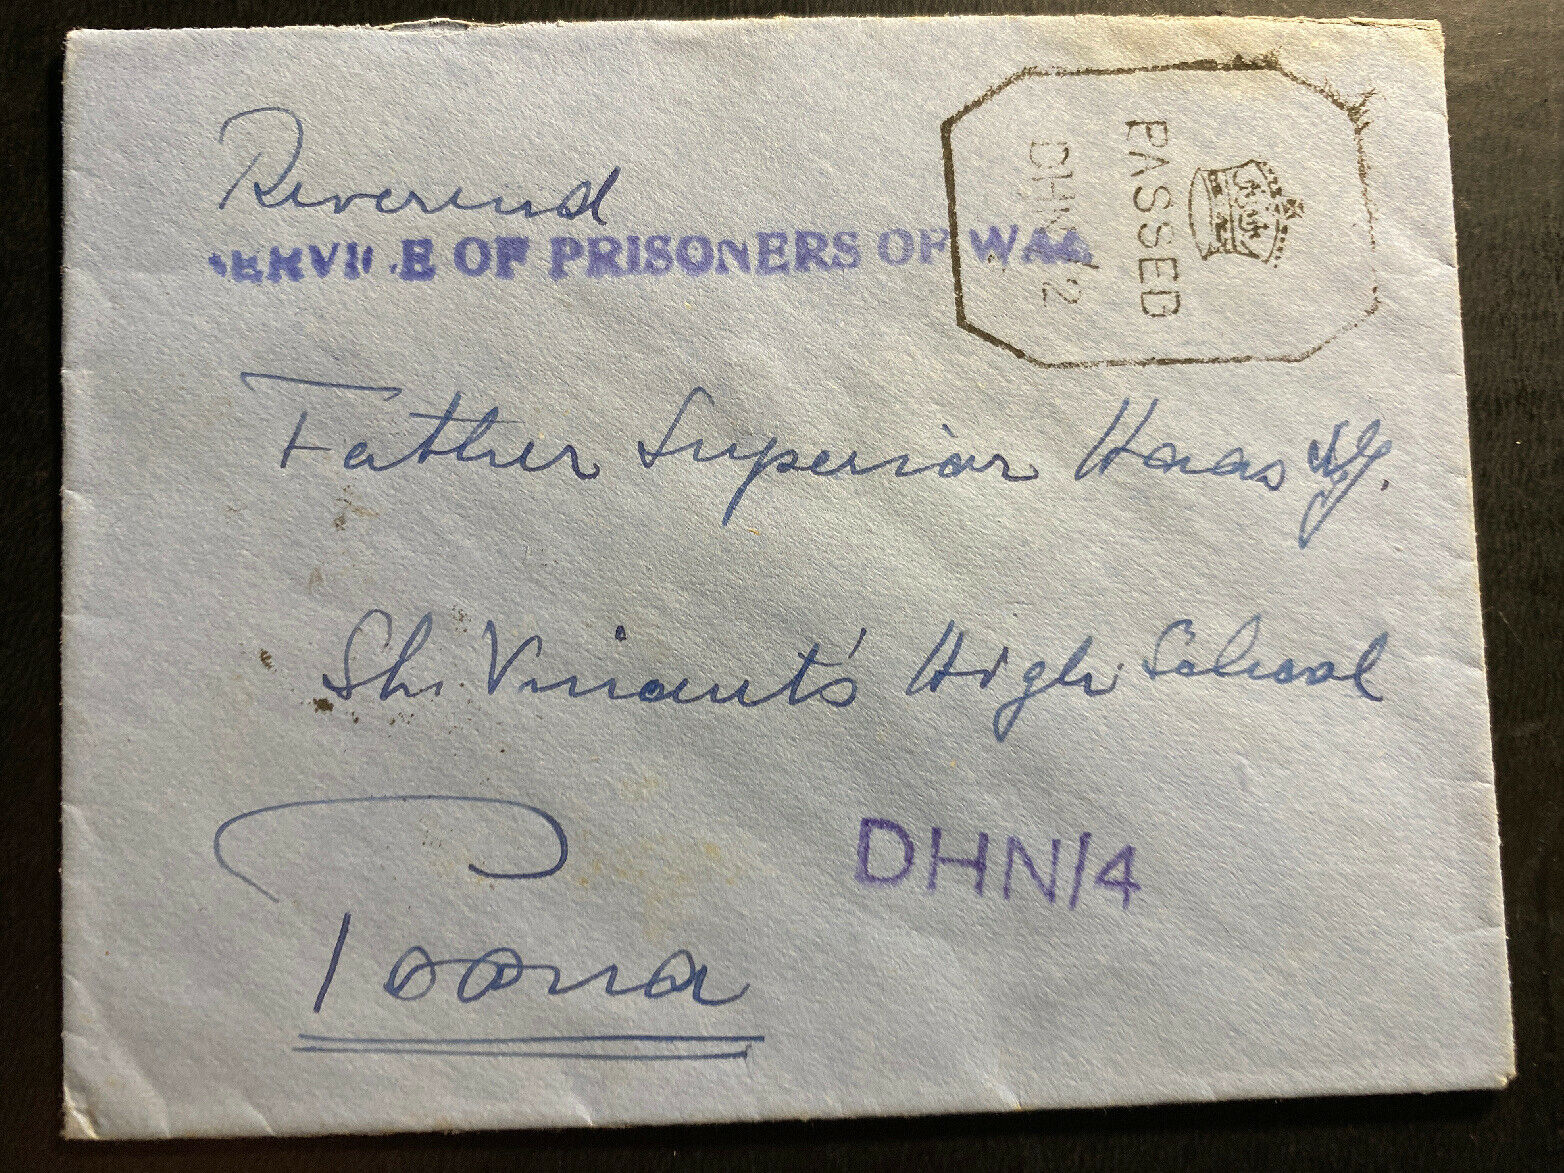 Reverend
SERVICE OF PRISONERS OF WAR
PASSED
DHN/ /2
Father Superior Haas S.J.
St. Vincent's High School
DHN/4
Poona